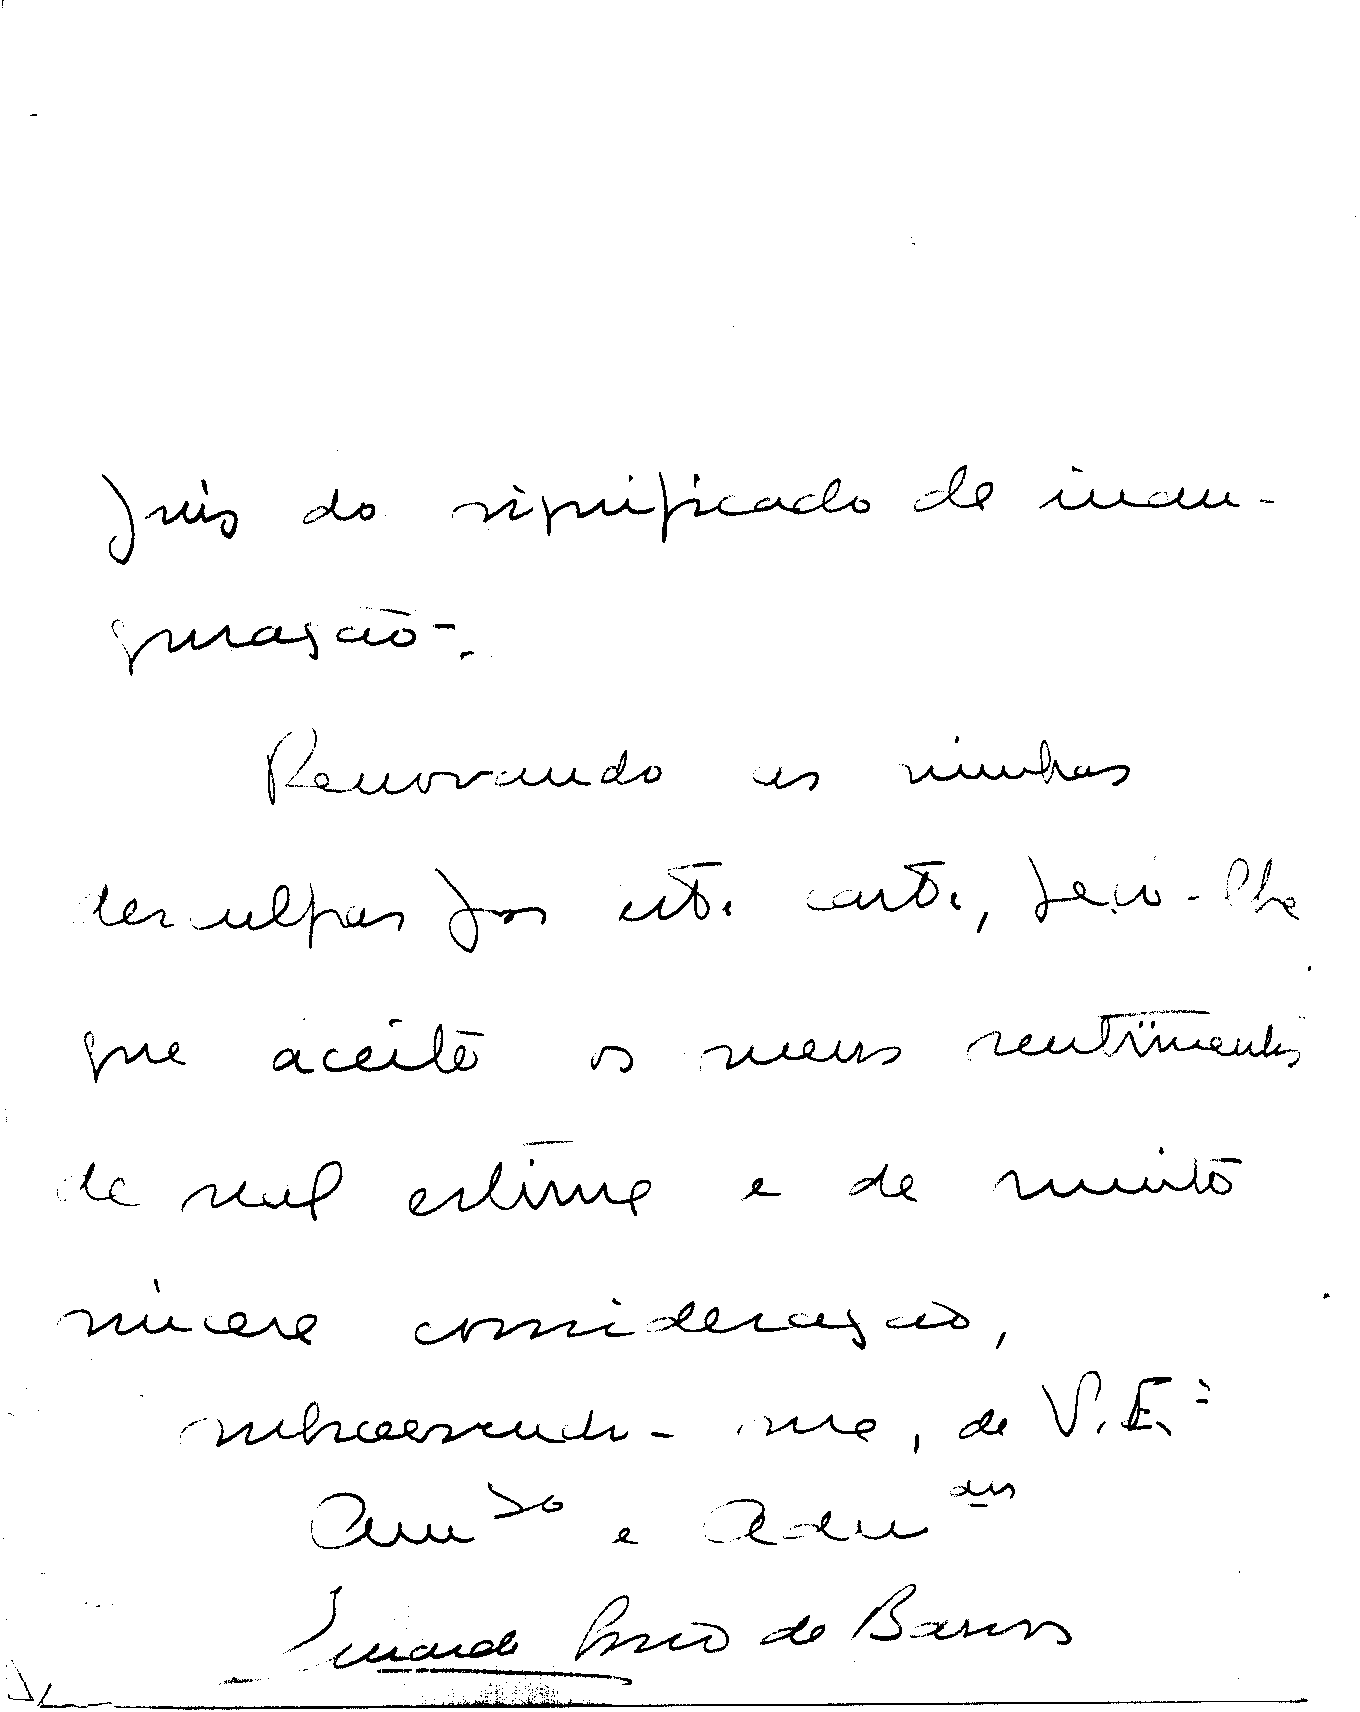 pois do significado de inau-
guração.
Renovando as minhas
desculpas por esta carta, peço-lhe
que aceite os meus sentimentos
de real estima e de muito
sincera consideração,
subscrevendo-me, de V. E.ª
e Adm.dor
de Barros